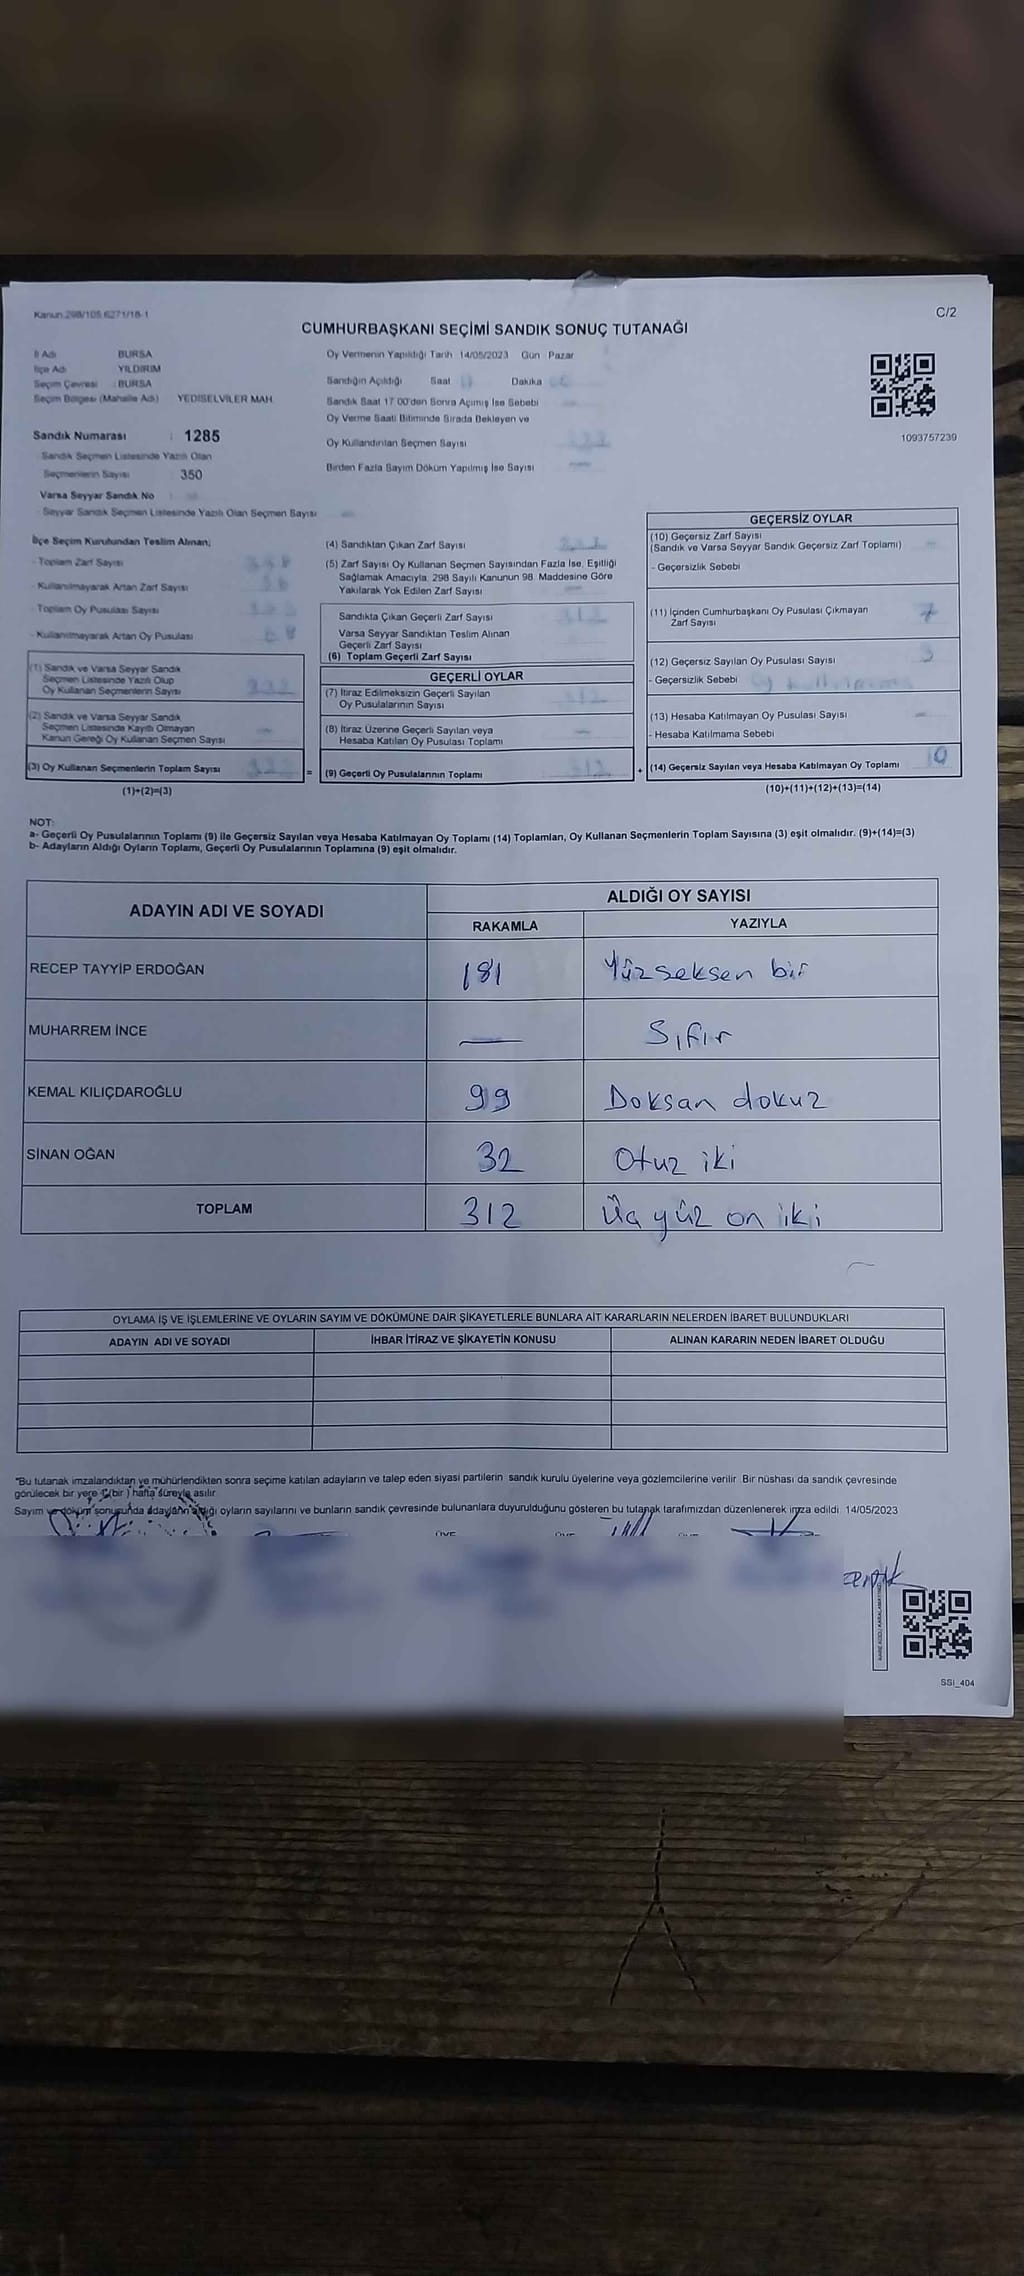 Kanun:298/105 6271/18-1
C/2
CUMHURBAŞKANI SEÇİMİ SANDIK SONUÇ TUTANAĞI
İl Adı BURSA
İlçe Adı YILDIRIM
Seçim Çevresi : BURSA
Seçim Bölgesi (Mahalle Adı) YEDİSELVİLER MAH.
Sandık Numarası : 1285
Sandık Seçmen Listesinde Yazılı Olan
Seçmenlerin Sayısı : 350
Varsa Seyyar Sandık No :
Seyyar Sandık Seçmen Listesinde Yazılı Olan Seçmen Sayısı
Oy Vermenin Yapıldığı Tarih 14/05/2023 Gün Pazar
Sandığın Açıldığı Saat Dakika
Sandık Saat 17:00'den Sonra Açılmış İse Sebebi
Oy Verme Saati Bitiminde Sırada Bekleyen ve
Oy Kullandırılan Seçmen Sayısı
Birden Fazla Sayım Döküm Yapılmış İse Sayısı
1093757239
İlçe Seçim Kurulundan Teslim Alınan;
- Toplam Zarf Sayısı
- Kullanılmayarak Artan Zarf Sayısı
- Toplam Oy Pusulası Sayısı
- Kullanılmayarak Artan Oy Pusulası
(1) Sandık ve Varsa Seyyar Sandık
Seçmen Listesinde Yazılı Olup
Oy Kullanan Seçmenlerin Sayısı 332
(2) Sandık ve Varsa Seyyar Sandık
Seçmen Listesinde Kayıtlı Olmayan
Kanun Gereği Oy Kullanan Seçmen Sayısı
(3) Oy Kullanan Seçmenlerin Toplam Sayısı
(1)+(2)=(3)
(4) Sandıktan Çıkan Zarf Sayısı
(5) Zarf Sayısı Oy Kullanan Seçmen Sayısından Fazla İse, Eşitliği
Sağlamak Amacıyla, 298 Sayılı Kanunun 98. Maddesine Göre
Yakılarak Yok Edilen Zarf Sayısı
Sandıkta Çıkan Geçerli Zarf Sayısı 312
Varsa Seyyar Sandıktan Teslim Alınan
Geçerli Zarf Sayısı
(6) Toplam Geçerli Zarf Sayısı
GEÇERLİ OYLAR
(7) İtiraz Edilmeksizin Geçerli Sayılan
Oy Pusulalarının Sayısı 312
(8) İtiraz Üzerine Geçerli Sayılan veya
Hesaba Katılan Oy Pusulası Toplamı
= (9) Geçerli Oy Pusulalarının Toplamı 312
GEÇERSİZ OYLAR
(10) Geçersiz Zarf Sayısı
(Sandık ve Varsa Seyyar Sandık Geçersiz Zarf Toplamı)
- Geçersizlik Sebebi
(11) İçinden Cumhurbaşkanı Oy Pusulası Çıkmayan
Zarf Sayısı 7
(12) Geçersiz Sayılan Oy Pusulası Sayısı 3
- Geçersizlik Sebebi
(13) Hesaba Katılmayan Oy Pusulası Sayısı
- Hesaba Katılmama Sebebi
+ (14) Geçersiz Sayılan veya Hesaba Katılmayan Oy Toplamı 10
(10)+(11)+(12)+(13)=(14)
NOT:
a- Geçerli Oy Pusulalarının Toplamı (9) ile Geçersiz Sayılan veya Hesaba Katılmayan Oy Toplamı (14) Toplamları, Oy Kullanan Seçmenlerin Toplam Sayısına (3) eşit olmalıdır. (9)+(14)=(3)
b- Adayların Aldığı Oyların Toplamı, Geçerli Oy Pusulalarının Toplamına (9) eşit olmalıdır.
ADAYIN ADI VE SOYADI
ALDIĞI OY SAYISI
RAKAMLA YAZIYLA
RECEP TAYYİP ERDOĞAN 181 Yüzseksen bir
MUHARREM İNCE — Sıfır
KEMAL KILIÇDAROĞLU 99 Doksan dokuz
SİNAN OĞAN 32 Otuz iki
TOPLAM 312 Üç yüz on iki
OYLAMA İŞ VE İŞLEMLERİNE VE OYLARIN SAYIM VE DÖKÜMÜNE DAİR ŞİKAYETLERLE BUNLARA AİT KARARLARIN NELERDEN İBARET BULUNDUKLARI
ADAYIN ADI VE SOYADI İHBAR İTİRAZ VE ŞİKAYETİN KONUSU ALINAN KARARIN NEDEN İBARET OLDUĞU
"Bu tutanak imzalandıktan ve mühürlendikten sonra seçime katılan adayların ve talep eden siyasi partilerin sandık kurulu üyelerine veya gözlemcilerine verilir. Bir nüshası da sandık çevresinde
görülecek bir yere 1 (bir ) hafta süreyle asılır.
Sayım ve döküm sonucunda adayların aldığı oyların sayılarını ve bunların sandık çevresinde bulunanlara duyurulduğunu gösteren bu tutanak tarafımızdan düzenlenerek imza edildi. 14/05/2023
SSI_404